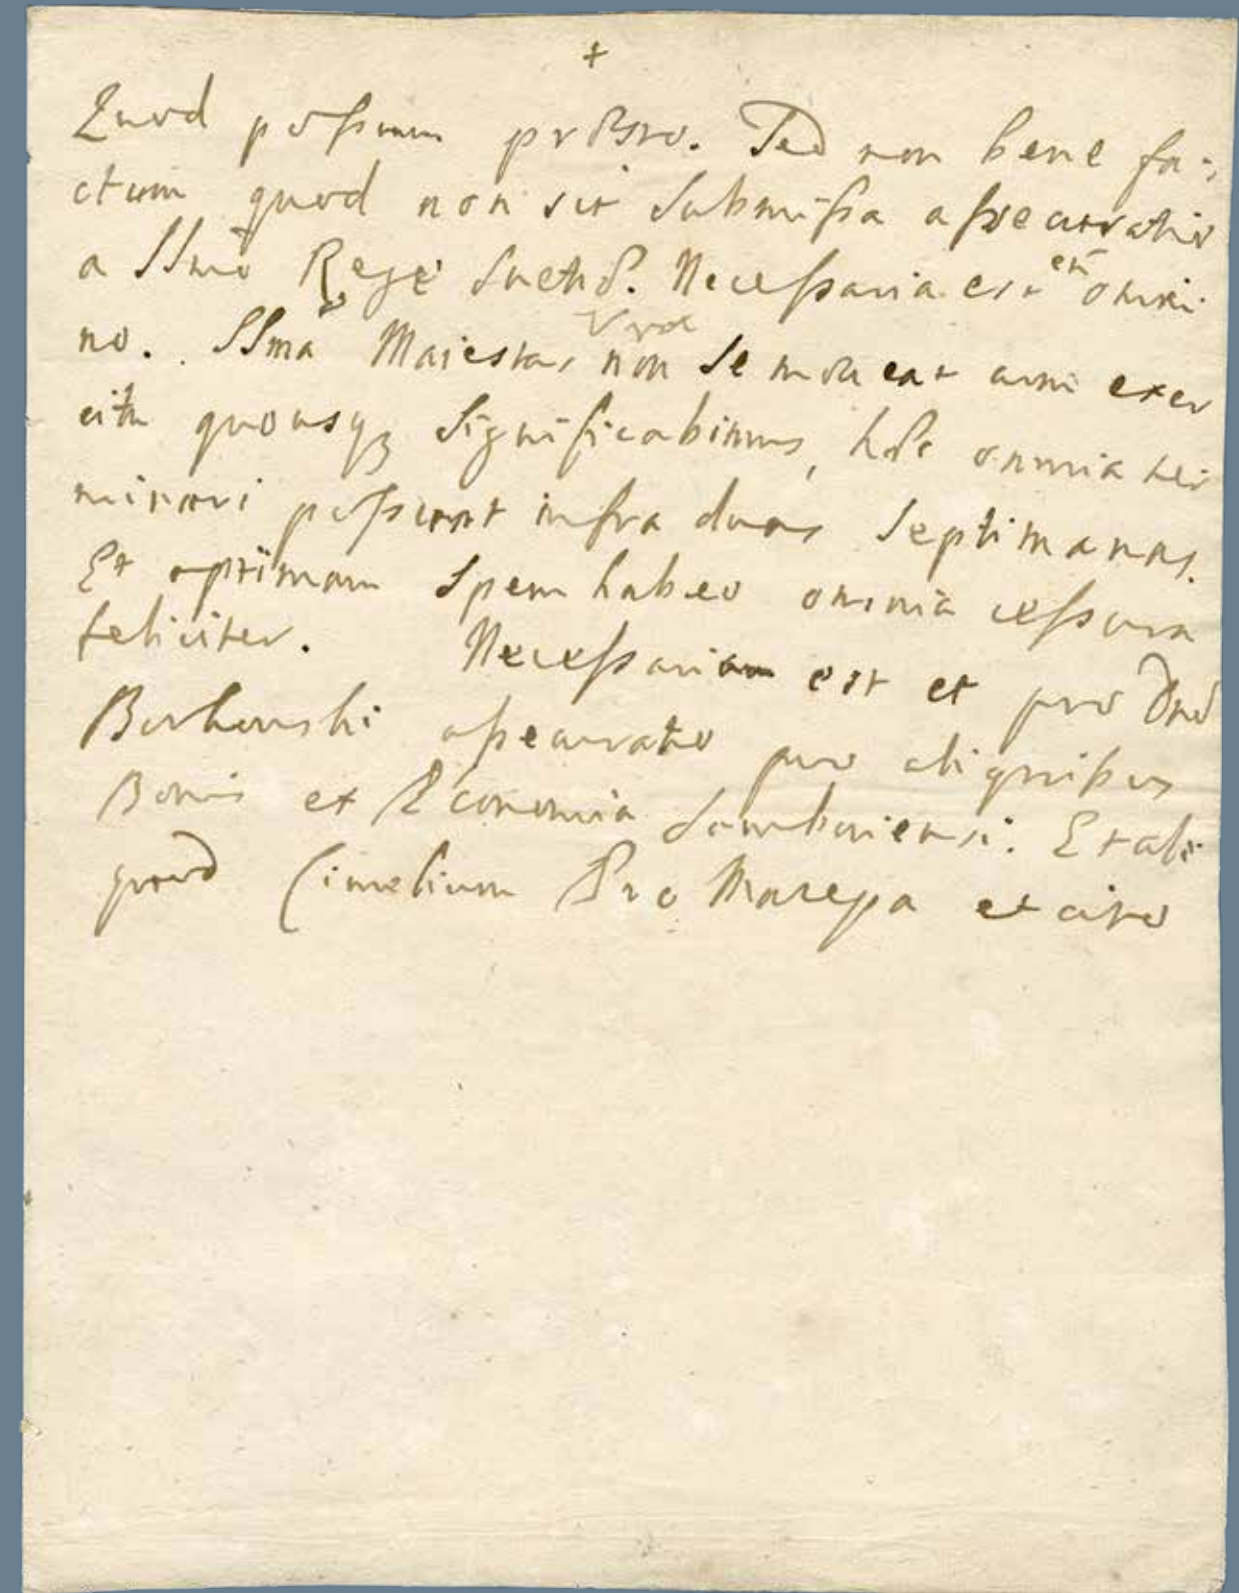 +
Quod possum presto. Sed non bene fa-
ctum quod non sit submissa assecuratio
a SSmo Rege Sueco. Necessaria est eni omni
no. SSma Maiestas Vra non se moveat cum exer
citu quousq significabimus, hoc omnia ter
minari possunt infra duas Septimanas.
Et optimam spem habeo omnia cessura
feliciter. Necessaria est et pro Dno
assecuratio pro aliquibus
Bonis et Economia Samboriensi. Et ali
quod Cimelium Pro Mazepa et cito